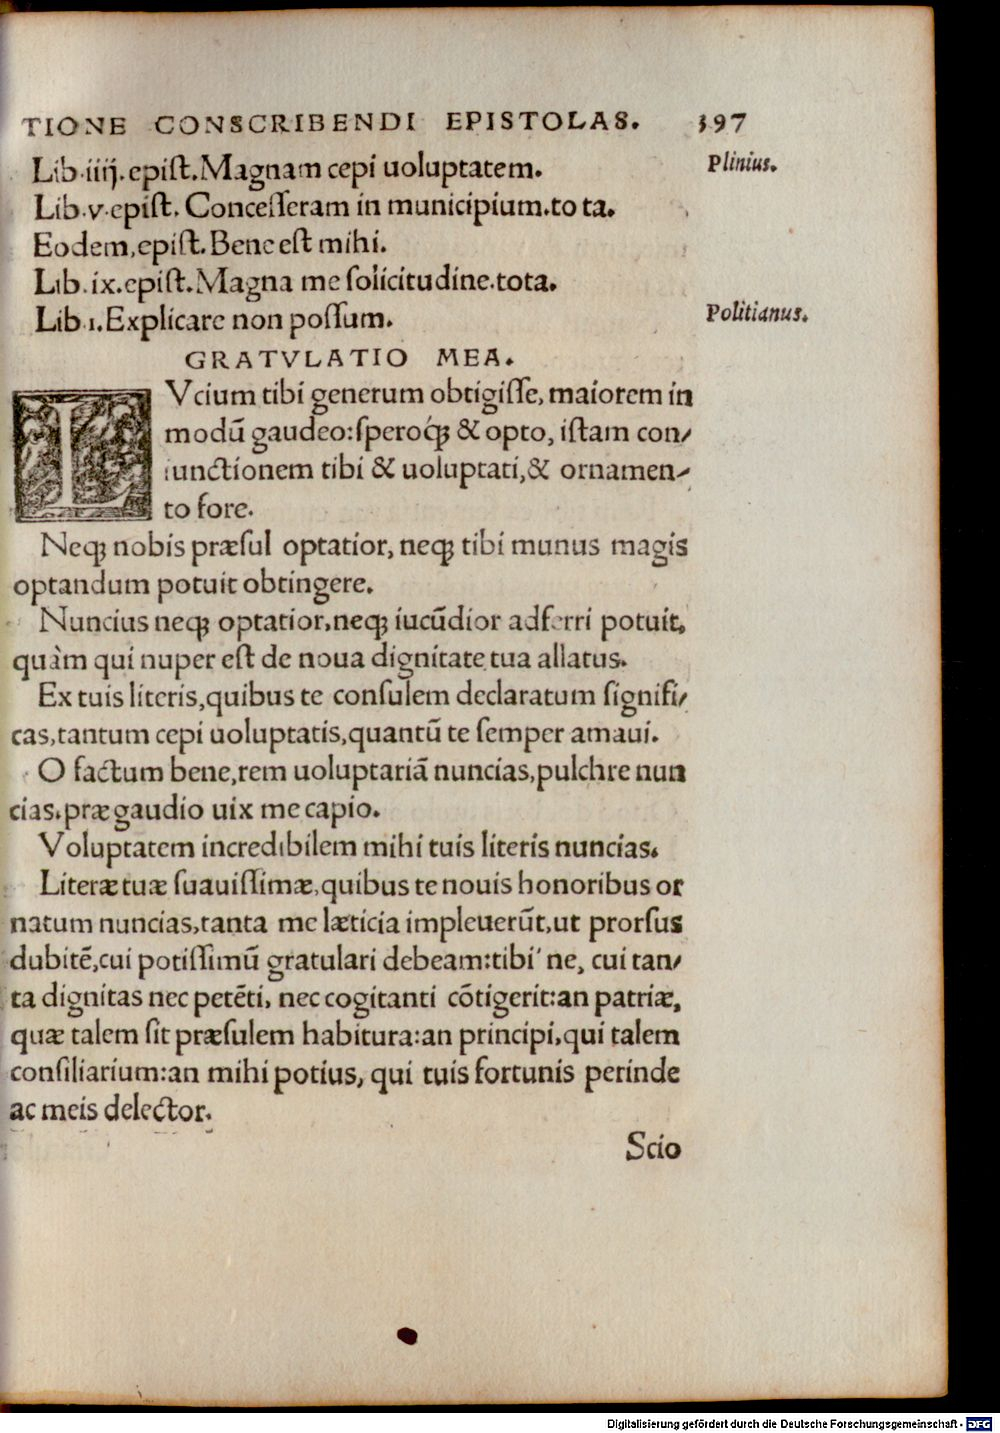 TIONE CONSCRIBENDI EPISTOLAS. 397
Lib.iiij.epiſt.Magnam cepi uoluptatem. Plinius.
Lib.v.epiſt.Conceſſeram in municipium.to ta.
Eodem,epiſt.Bene eſt mihi.
Lib.ix.epiſt.Magna me ſolicitudine.tota.
Lib.1.Explicare non poſſum. Politianus.
GRATVLATIO MEA.
LVcium tibi generum obtigiſſe, maiorem in
modū gaudeo:ſperoq́ꝫ & opto, iſtam con/
iunctionem tibi & uoluptati,& ornamen/
to fore.
Neqꝫ nobis præſul optatior, neqꝫ tibi munus magis
optandum potuit obtingere.
Nuncius neqꝫ optatior,neqꝫ iucūdior adferri potuit,
quàm qui nuper eſt de noua dignitate tua allatus.
Ex tuis literis,quibus te conſulem declaratum ſignifi/
cas,tantum cepi uoluptatis,quantū te ſemper amaui.
O factum bene,rem uoluptariā nuncias,pulchre nun
cias.præ gaudio uix me capio.
Voluptatem incredibilem mihi tuis literis nuncias.
Literæ tuæ ſuauiſſimæ,quibus te nouis honoribus or
natum nuncias,tanta me læticia impleuerūt,ut prorſus
dubitē,cui potiſſimū gratulari debeam:tibi' ne, cui tan/
ta dignitas nec petēti, nec cogitanti cōtigerit:an patriæ,
quæ talem ſit præſulem habitura:an principi,qui talem
conſiliarium:an mihi potius, qui tuis fortunis perinde
ac meis delector.
Scio
Digitalisierung gefördert durch die Deutsche Forschungsgemeinschaft - DFG